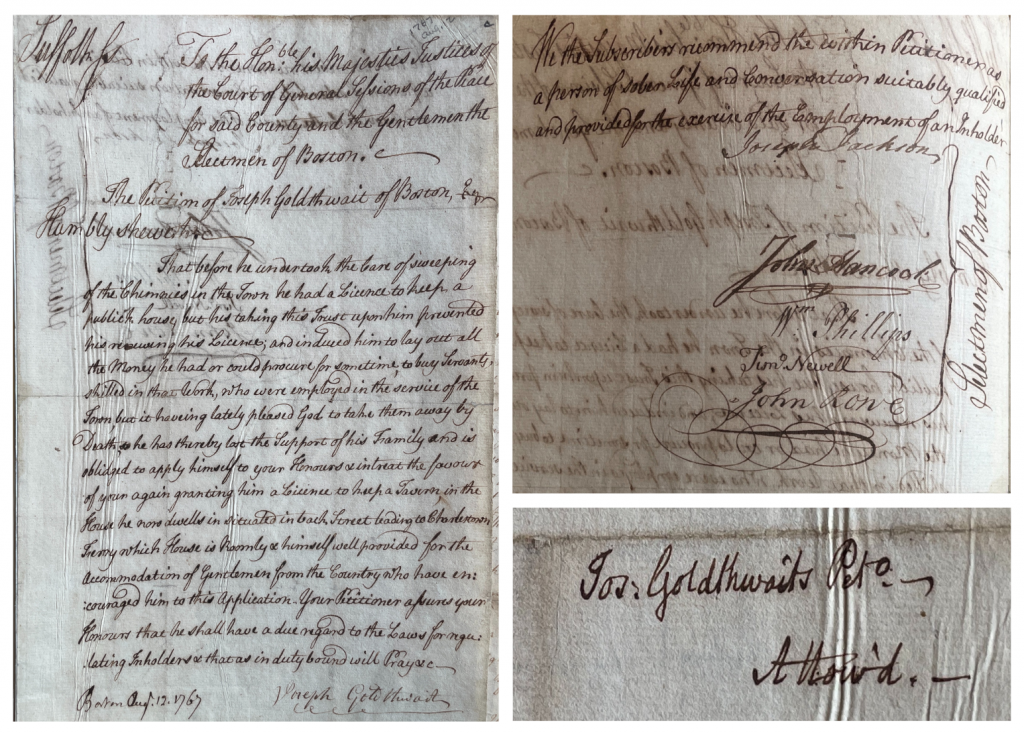 1767
Aug. 12
Suffolk ss
To the Hon:ble his Majesties Justices of
the Court of General Sessions of the Peace
for said County and the Gentlemen the
Selectmen of Boston.
The Petition of Joseph Goldthwait of Boston,
Humbly sheweth
That before he undertook the Care of sweeping
of the Chimnies in the Town he had a Licence to keep a
publick house, but his taking this Trust upon him prevented
his renewing his Licence, and induced him to lay out all
the Money he had or could procure for sometime to buy Servants
skilled in that Work, who were employed in the service of the
Town but it haveing lately pleased God to take them away by
Death, he has thereby lost the Support of his Framily and is
obliged to apply himself to your Honours & intreat the favour
of your again granting him a Licence to keep a Tavern in the
House he now dwells in situated in back Street leading to Charlestown
Ferry which House is Roomly & himself well provided for the
Accommodation of Gentlemen from the Country who have en:
:couraged him to this Application. Your Petitioner assures your
Honours that he shall have a due regard to the Laws for regu:
lating Inholders & that as in duty bound will Pray &c
Boston Augt. 12. 1767
Joseph Goldthwait
We the Subscribers recommend the within Petitioner as
a person of sober Life and Conversation suitably qualified
and provided for the exercise of the Employment of an Inholder
Joseph Jackson
John Hancock
Wm. Phillips
Timo. Newell
John Rowe
Selectmen of Boston
Jos: Goldthwaits Peto.
Allow'd.